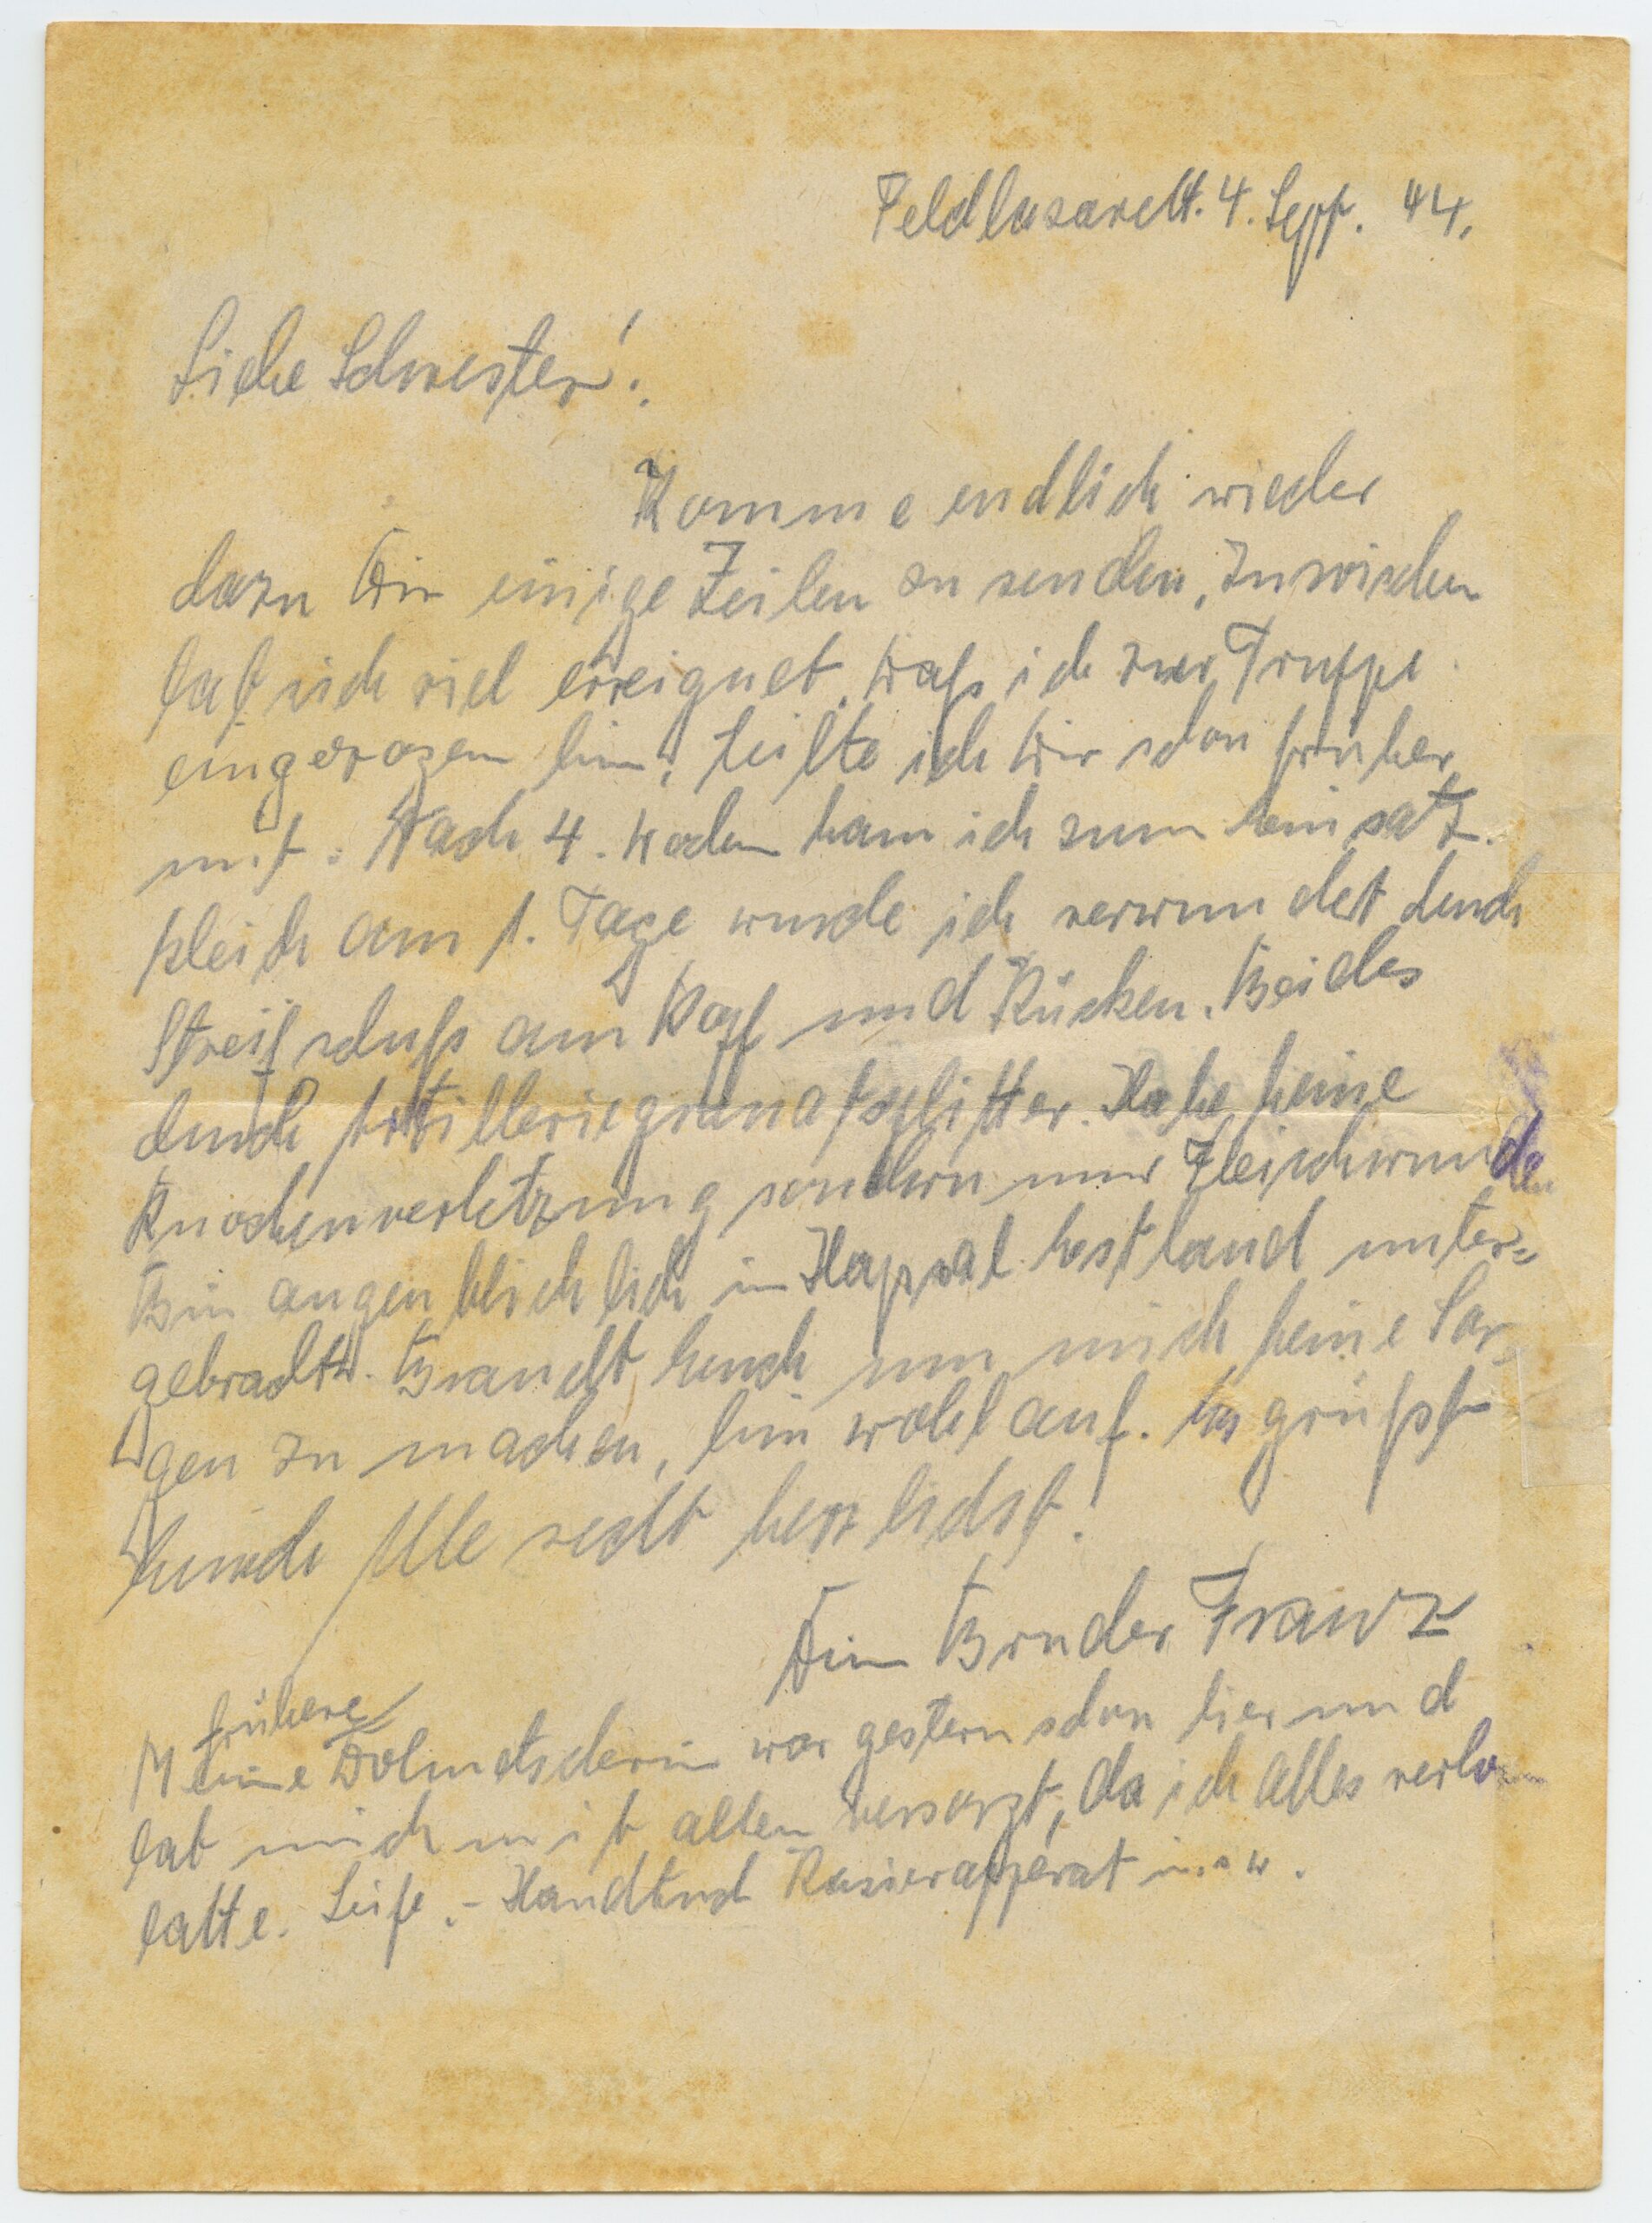 Feldlazarett. 4. Sept. 44.
Liebe Schwester!
Komme endlich wieder
dazu Dir einige Zeilen zu senden, Inzwischen
hat sich viel ereignet. Daß ich zur Truppe
eingezogen bin, teilte ich Dir schon früher
mit. Nach 4. Wochen kam ich zum Einsatz.
Gleich am 1. Tage wurde ich verwundet durch
Streifschuß am Kopf und Rücken. Beides
durch Artilleriegranatsplitter. Habe keine
Knochenverletzung sondern nur Fleischwunden
Bin augenblicklich in Hapsal Estland unter=
gebracht. Braucht Euch um mich keine Sor-
gen zu machen, bin wohlauf. Es grüßt
Euch Alle recht herzlichst!
Dein Bruder Franz
frühere
Meine Dolmetscherin war gestern schon hier und
hat mich mit allen versorgt, da ich alles verloren
hatte. Seife.- Handtuch Rasierapparat u.s.w.